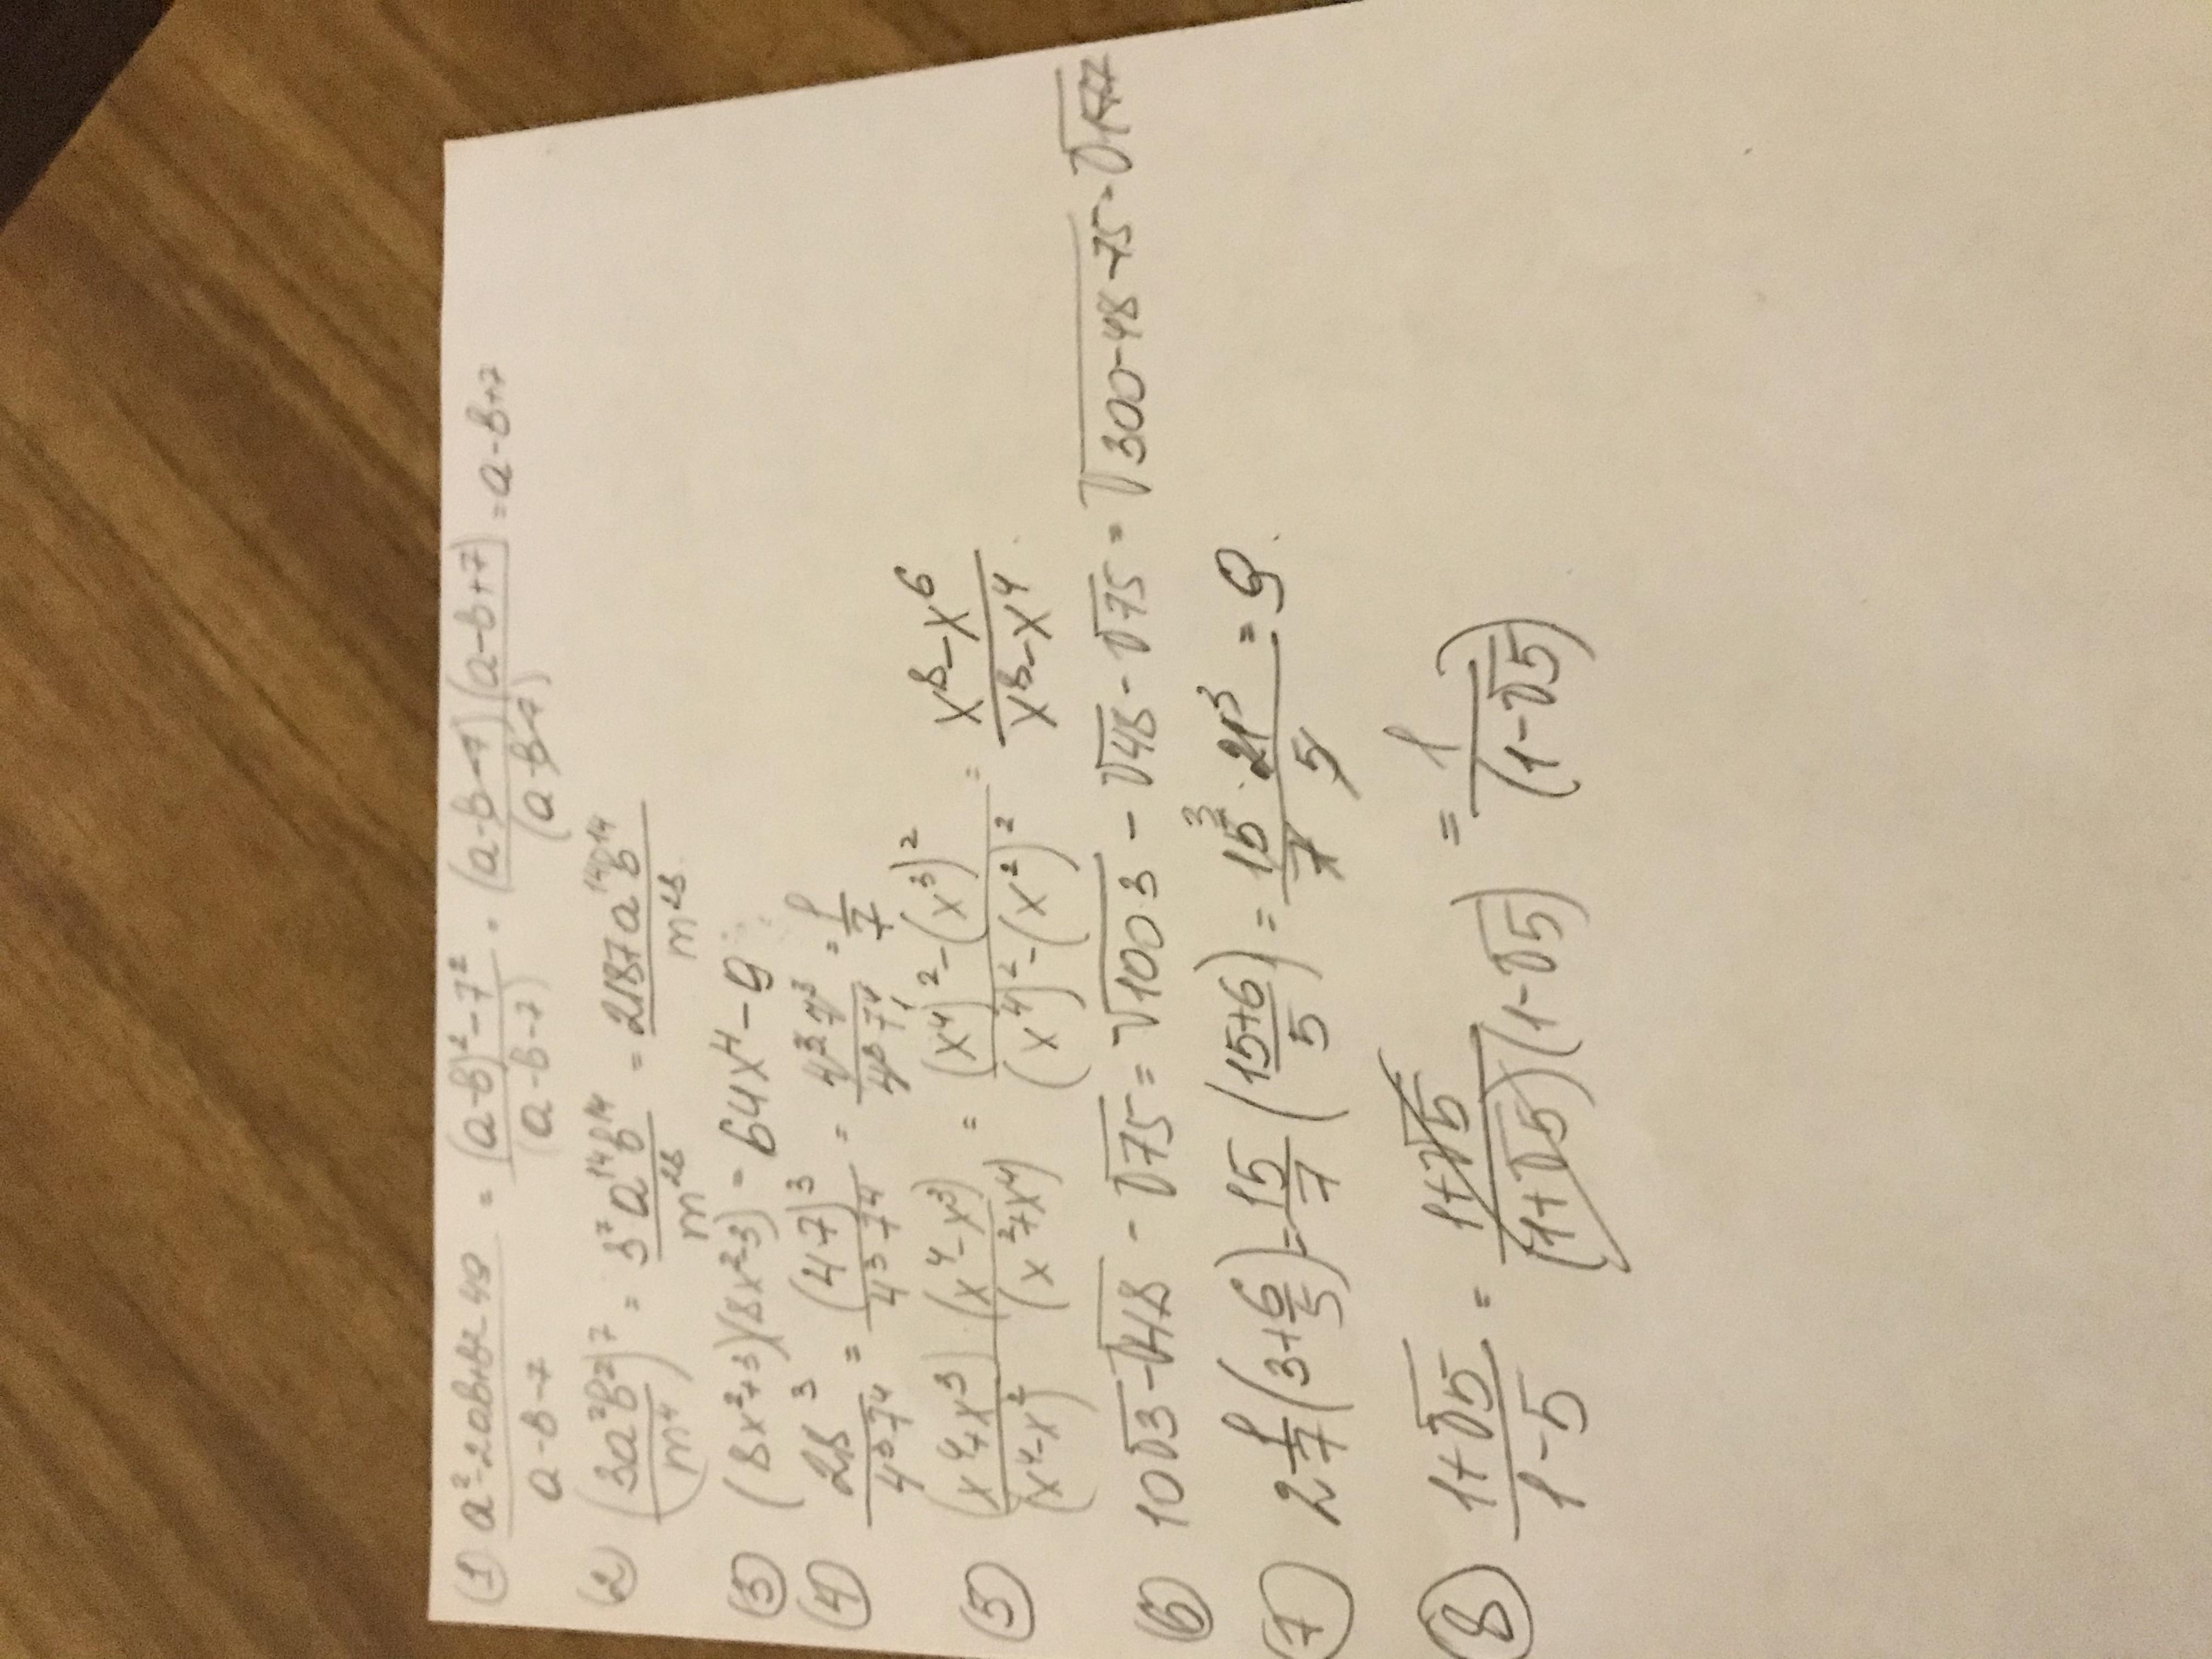 ① (a²-2ab+b²-49)/(a-b-7) = ((a-b)²-7²)/(a-b-7) = ((a-b-7)(a-b+7))/(a-b-7) = a-b+7
② (3a²b²/m⁴)⁷ = 3⁷a¹⁴b¹⁴/m²⁸ = 2187a¹⁴b¹⁴/m²⁸
③ (8x²+3)(8x²-3) = 64x⁴-9
④ 28³/(4³·7⁴) = (4·7)³/(4³·7⁴) = 4³·7³/(4³·7⁴) = 1/7
⑤ (x⁴+x³)(x⁴-x³)/((x⁴-x²)(x²+x⁴)) = ((x⁴)²-(x³)²)/((x⁴)²-(x²)²) = (x⁸-x⁶)/(x⁸-x⁴)
⑥ 10√3-√48-√75 = √100·3-√48-√75 = √300-48-75 = √177
⑦ 2 1/7 (3+6/5) = 15/7 ((15+6)/5) = 15³/7 · 21³/5 = 9
⑧ (1+√5)/(1-5) = (1+√5)/((1+√5)(1-√5)) = 1/(1-√5)